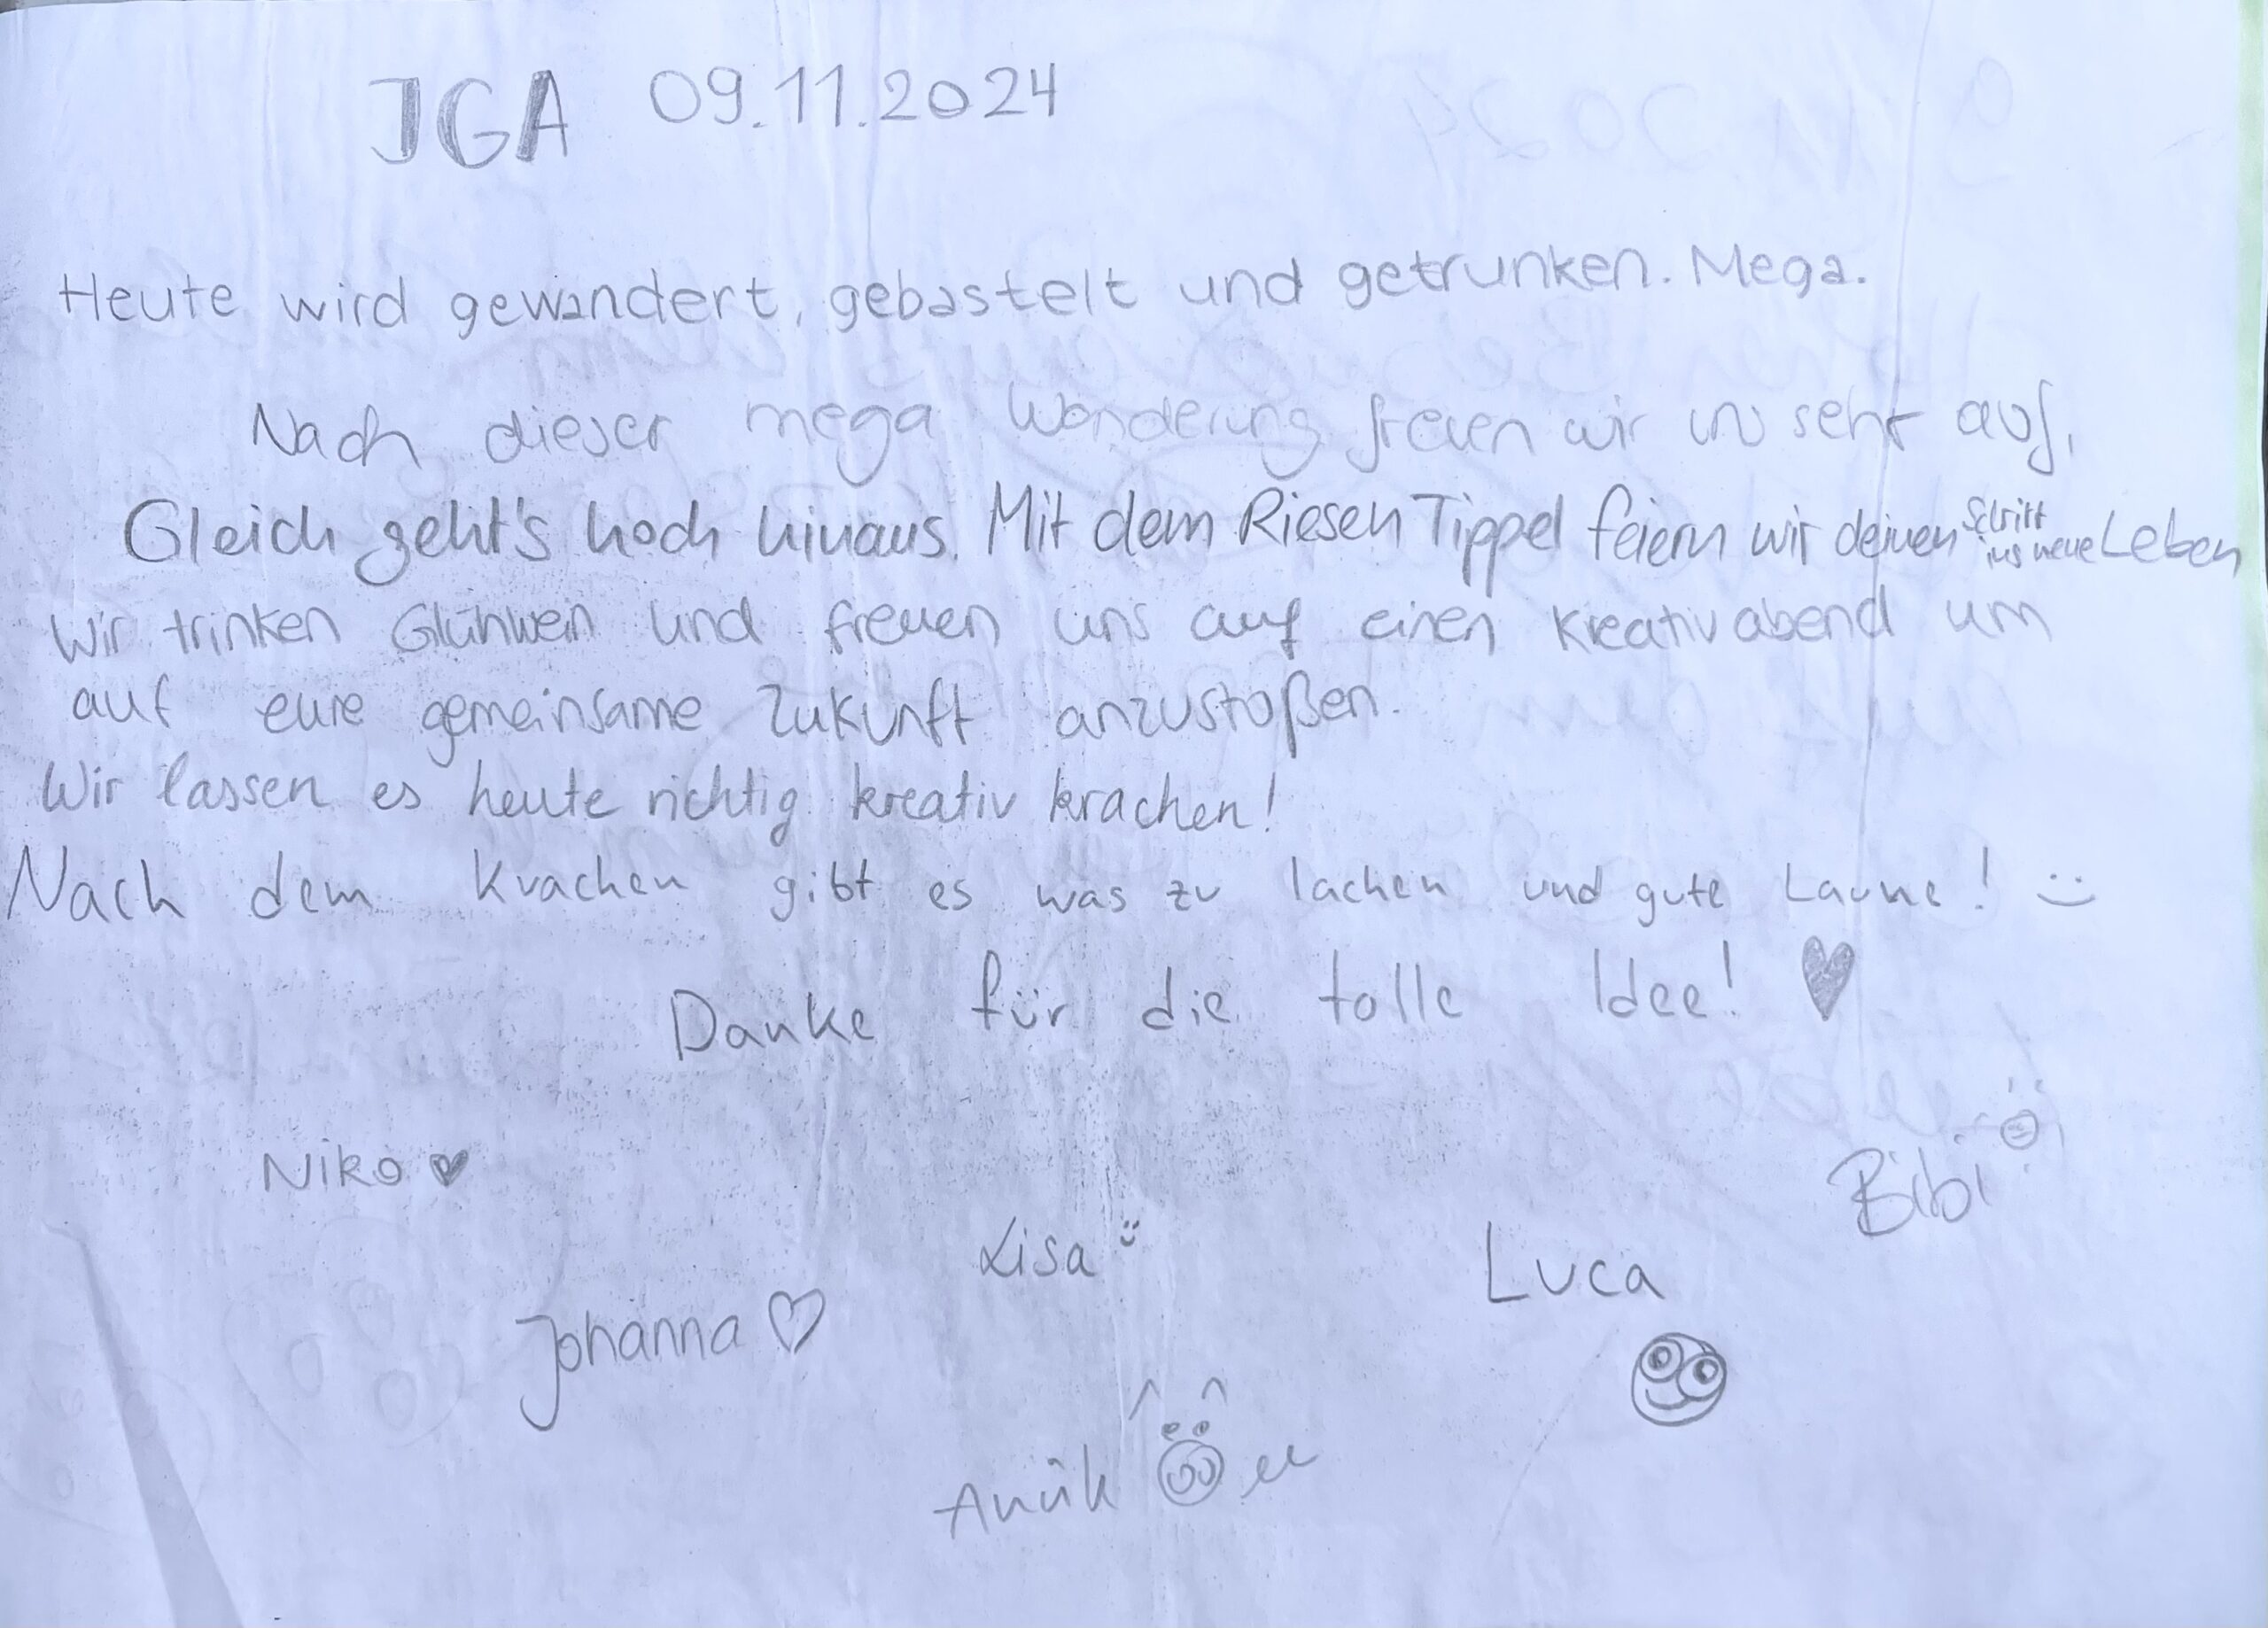 JGA 09.11.2024
Heute wird gewandert, gebastelt und getrunken. Mega.
Nach dieser mega Wanderung freuen wir uns sehr auf,
Gleich geht's hoch hinaus. Mit dem Riesen Tippel feiern wir deinen Schritt ins neue Leben
Wir trinken Glühwein und freuen uns auf einen Kreativabend um
auf eure gemeinsame Zukunft anzustoßen.
Wir lassen es heute richtig kreativ krachen!
Nach dem Krachen gibt es was zu lachen und gute Laune! :)
Danke für die tolle Idee! ♥
Niko ♥
Bibi
Lisa :)
Luca
Johanna ♡